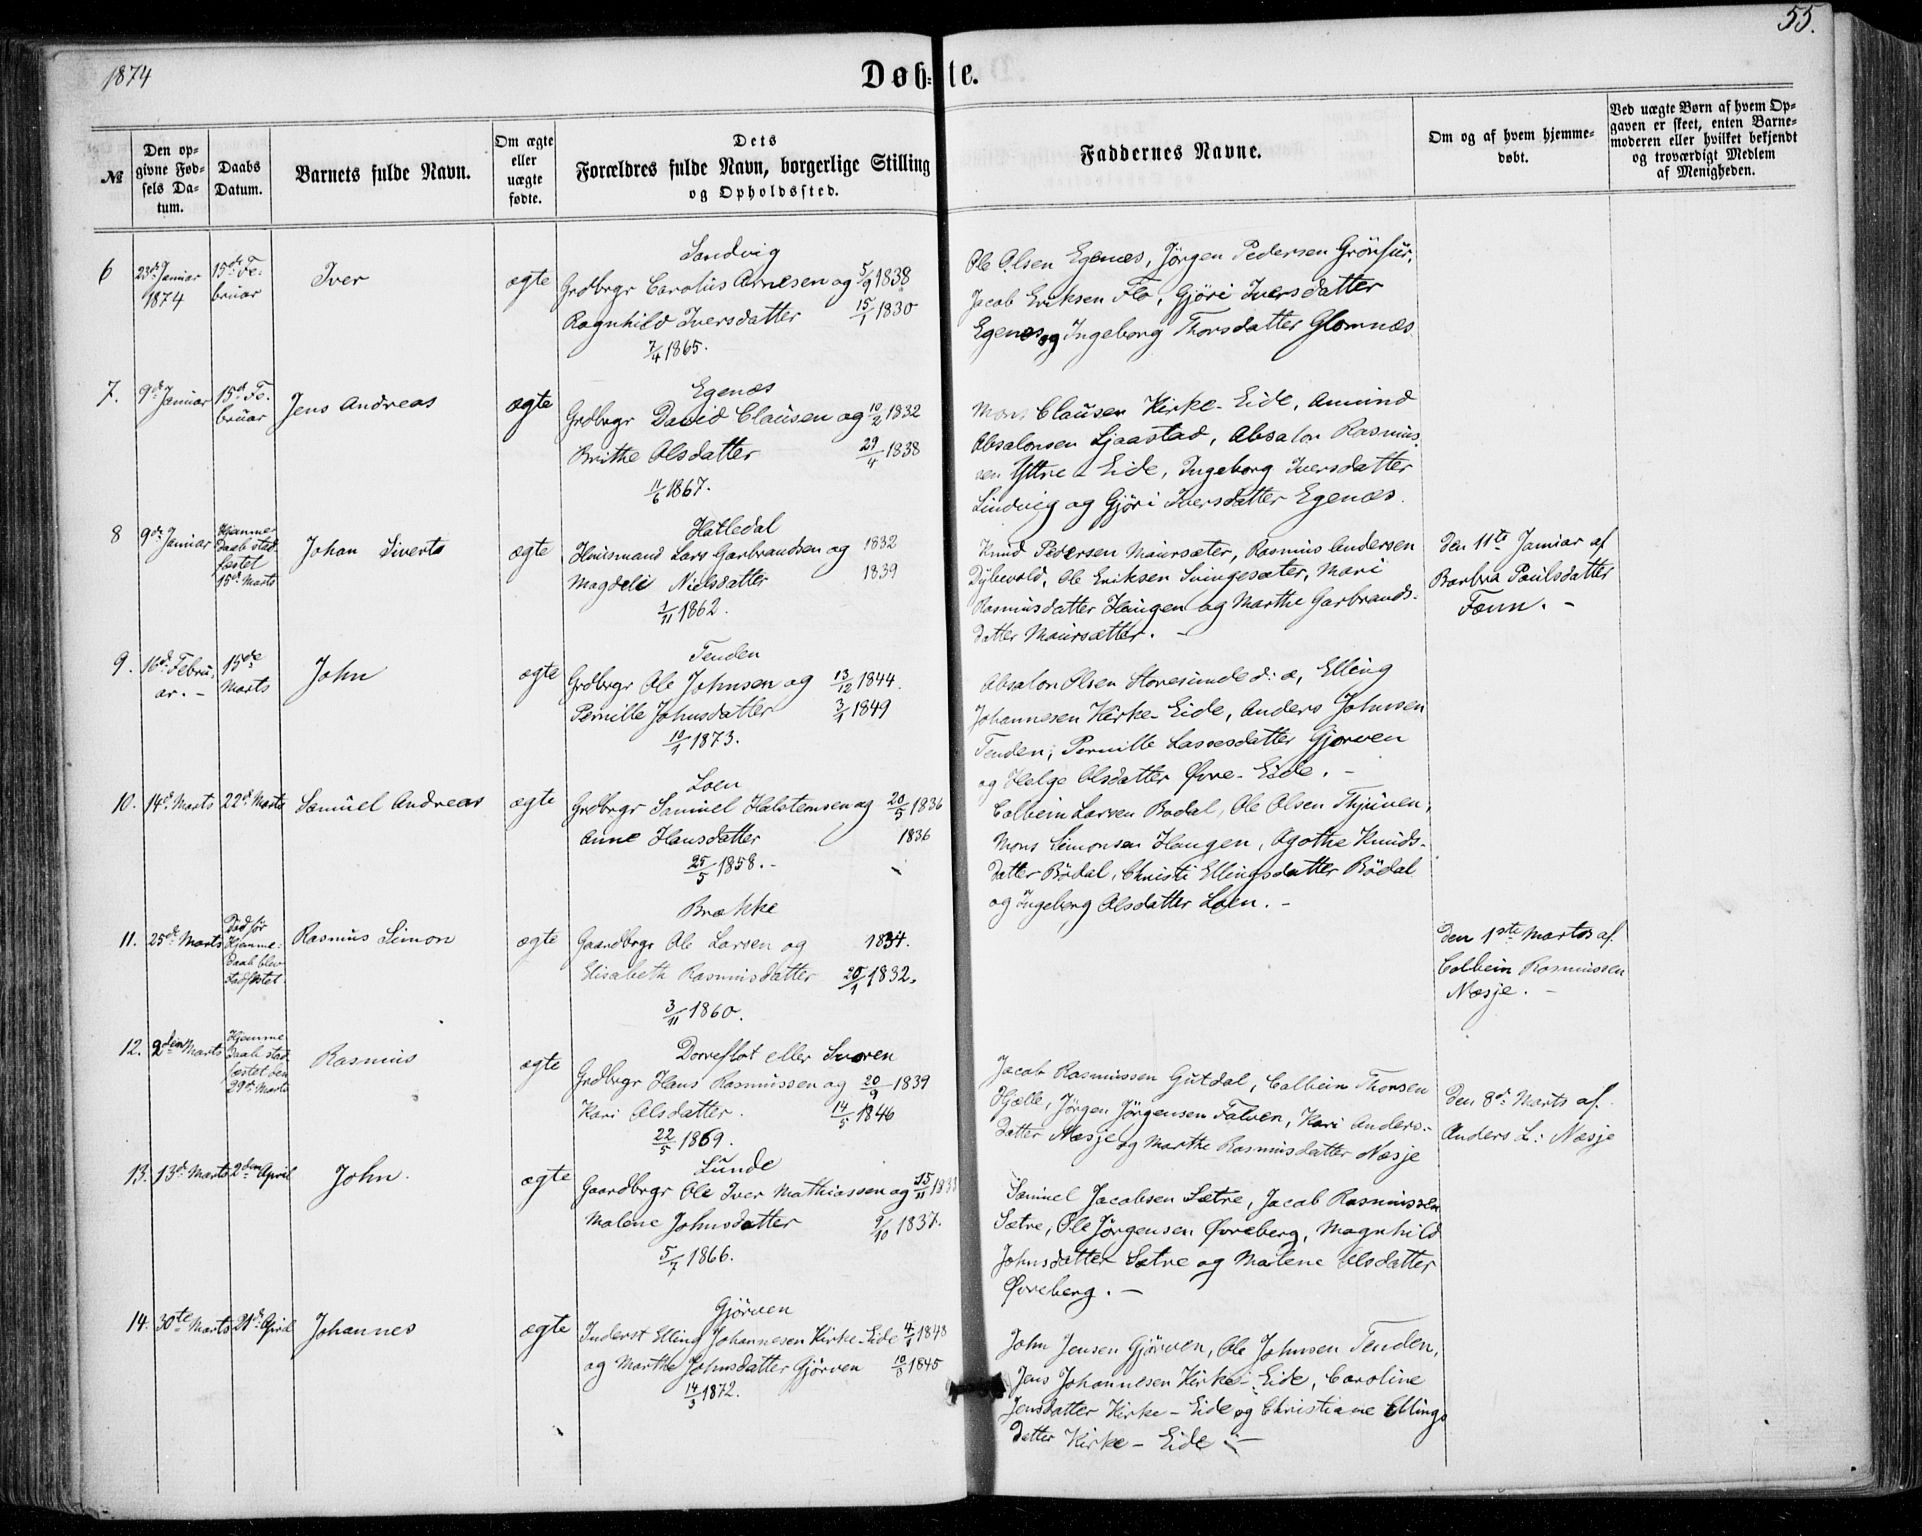 1874
Døb=te.
55.
№
Den op=
givne Fød=
sels Da=
tum.
Daabs
Datum.
Barnets fulde Navn.
Om ægte
eller
uægte
fødte.
Dets
Forældres fulde Navn, borgerlige Stilling
og Opholdssted.
Faddernes Navne.
Om og af hvem hjemme=
døbt.
Ved uægte Børn af hvem Op=
gaven er skeet, enten Barne=
moderen eller hvilket bekjendt
og troværdigt Medlem
af Menigheden.
6
23de Januar
1874
15de Fe-
bruar
Iver
ægte
Sandvig
Grdbrgr Carolus Arnesen og 5/9 1838
Ragnhild Iversdatter 15/1 1830
7/4 1865.
Ole Olsen Egenæs, Jørgen Pedersen
Jacob Eriksen Flo, Gjøri Iversdatter
Egenæs og Ingeborg Thorsdatter Glomnæs.
7.
9de Januar
15de Fe-
bruar
Jens Andreas
ægte
Egenæs
Grdbrgr David Clausen og 10/2 1832
Brithe Olsdatter 29/4 1838
11/6 1867.
Mons Clausen Kirke-Eide, Amund
Absalonsen Ljaastad, Absalon Rasmus-
sen Yttre-Eide, Ingeborg Iversdatter
Sindvig og Gjøri Iversdatter Egenæs.
8
9de Januar
Hjemme-
Daab stad-
fæstet
15de Marts
Johan Siverts
ægte
Hatledal
Huusmand Lars Garbrandsen og 1832
Magdeli Nielsdatter 1839
1/11 1862.
Knud Pedersen Maursæter, Rasmus Andersen
Dybevold, Ole Eriksen Svingesæter, Mari
Rasmusdatter Haugen og Marthe Garbrands-
datter Maursætter. -
den 11te Januar af
Barbra Paulsdatter
Fonn. -
9.
16de Febru-
ar. -
15de
Marts
John
ægte
Tenden
Grdbrgr Ole Johnsen og 13/12 1844.
Pernille Johnsdatter 3/1 1849
10/1 1873.
Absalon Olsen Storesunde d: æ, Elling
Johannesen Kirke-Eide, Anders Johnsen
Tenden, Pernille Lassesdatter Gjørven
og Helge Olsdatter Øvre-Eide. -
10.
14de Marts
22de Marts
Samuel Andreas
ægte
Loen
Grdbrgr Samuel Halstensen og 20/5 1836
Anne Hansdatter 1836
25/5 1858. -
Colbein Larsen Bødal, Ole Olsen Thjuven,
Mons Simonsen Haugen, Agothe Knuds-
datter Bødal, Christi Ellingsdatter Bödal
og Ingeborg Olsdatter Loen. -
11.
25de Marts
Død før
Hjemme-
daab blev
stadfæstet.
Rasmus Simon
ægte
Brække
Gaardbrgr Ole Larsen og 1834.
Elisabeth Rasmusdatter 20/1 1832.
3/11 1860.
den 1ste Marts af.
Colbein Rasmussen
Næsje. -
12.
2den Marts
Hjemme
Daab stad-
fæstet den
29de Marts
Rasmus
ægte
Dorreflot eller Svoren
Grdbrgr Hans Rasmussen og 20/9 1839
Kari Olsdatter. 14/5 1846
22/5 1869.
Jacob Rasmussen Gutdal, Colbein Thorsen
Hjælle, Jörgen Jörgensen Falven, Kari Anders-
datter Næsje og Marthe Rasmusdatter Næsje
den 8de Marts af.
Anders L: Næsje
13.
13de Marts
2den April
John.
ægte
Lunde
Gaardbrgr Ole Iver Mathiassen og 15/11
Malene Johnsdatter 9/10 1837.
5/7 1866.
Samuel Jacobsen Sætre, Jacob Rasmussen
Sætre, Ole Jørgensen Øvreberg, Magnhild
Johnsdatter Sætre og Malene Olsdatter
Øvreberg. -
14.
30te Marts
21de April
Johannes
ægte
Gjörven
Inderst Elling Johannesen Kirke-Eide 4/1 1848
og Marthe Johnsdatter Gjörven 10/3 1845
14/3 1872.
John Jensen Gjörven, Ole Johnsen Tenden,
Jens Johannesen Kirke-Eide, Caroline
Jensdatter Kirke-Eide og Christiane Ellings
datter Kirke-Eide -